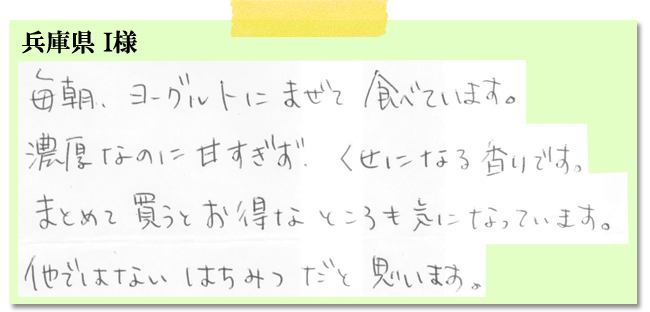 兵庫県 I様
毎朝、ヨーグルトにまぜて食べています。
濃厚なのに甘すぎず、くせになる香りです。
まとめて買うとお得なところも気になっています。
他ではないはちみつだと思います。